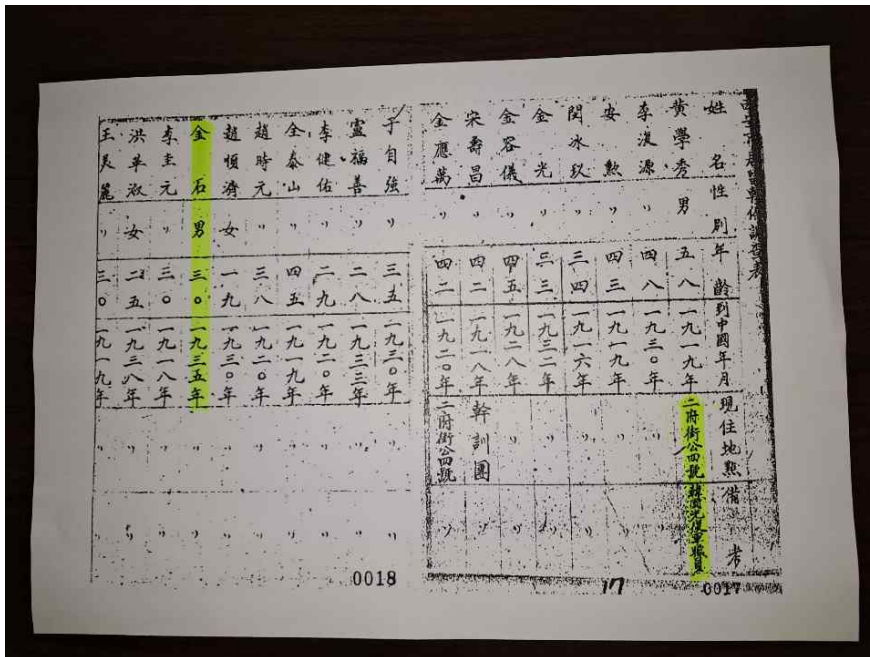 韓僑調查表
姓名 性別 年齡 到中國年月 現住地點 備考
黃學秀 男 五八 一九一九年 二府街公四號 韓國光復軍職員
李復源 〃 四八 一九三〇年 〃 〃
安勲 〃 四三 一九一九年 〃 〃
閔冰玖 〃 三四 一九一六年 〃 〃
金光 〃 三三 一九三二年 〃 〃
金容儀 〃 四五 一九二八年 〃 〃
宋壽昌 〃 四二 一九一八年 幹訓團 〃
金應萬 〃 四二 一九二〇年 二府街公四號 〃
17
0017
于自強 〃 三五 一九三〇年 〃 〃
盧福善 〃 二八 一九三三年 〃 〃
李健佑 〃 二九 一九二〇年 〃 〃
全泰山 〃 四五 一九一九年 〃 〃
趙時元 〃 三八 一九二〇年 〃 〃
趙順濟 女 一九 一九三〇年 〃 〃
金石 男 三〇 一九三五年 〃 〃
李圭元 〃 三〇 一九一八年 〃 〃
洪華淑 女 二五 一九三八年 〃 〃
王吳麗 〃 三〇 一九一九年 〃 〃
0018